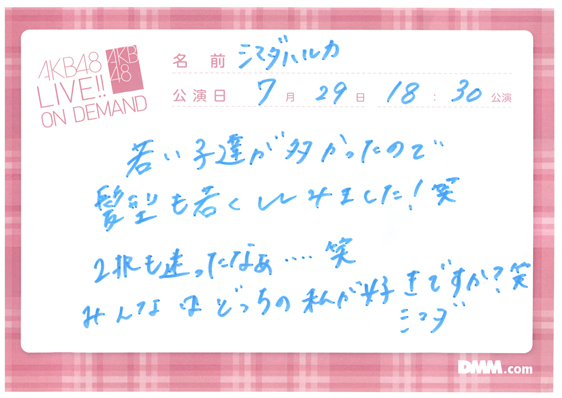 AKB48
LIVE!!
ON DEMAND
AKB
48
名前 シマダハルカ
公演日 7月29日 18:30公演
若い子達が多かったので
髪型も若くしてみました!笑
2択も迷ったなぁ‥‥笑
みんなはどっちの私が好きですか?笑
シマダ
DMM.com